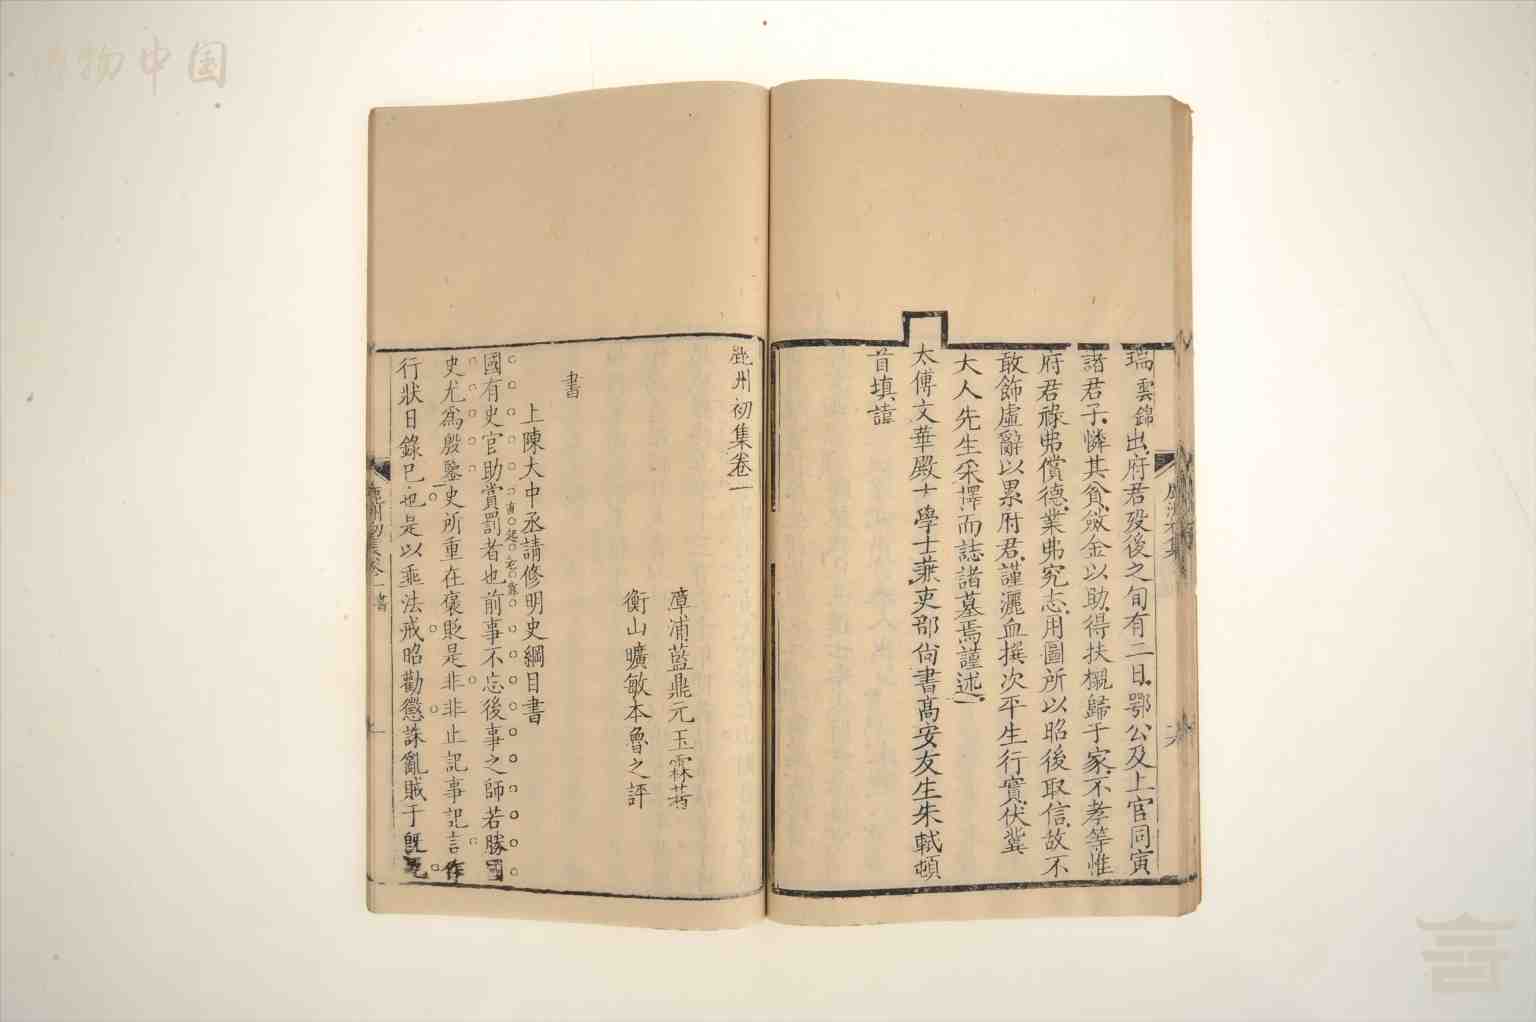 瑞雲錦出府君歿後之旬有二日鄂公及上官同寅
諸君子憐其貧斂金以助得扶櫬歸于家不孝等惟
府君祿弗償德業弗究志用圖所以昭後取信故不
敢飾虛辭以累府君謹灑血撰次平生行實伏冀
大人先生采擇而誌諸墓焉謹述
太傅文華殿大學士兼吏部尚書高安友生朱軾頓
首填諱
鹿洲初集卷一
漳浦藍鼎元玉霖著
衡山曠敏本魯之評
書
上陳大中丞請修明史綱目書
直起老靠
國有史官助賞罰者也前事不忘後事之師若勝國
史尤為殷鑒史所重在褒貶是非非止記事記言作
行狀日錄已也是以垂法戒昭勸懲誅亂賊于既死
鹿洲初集卷一 書
一
物中国